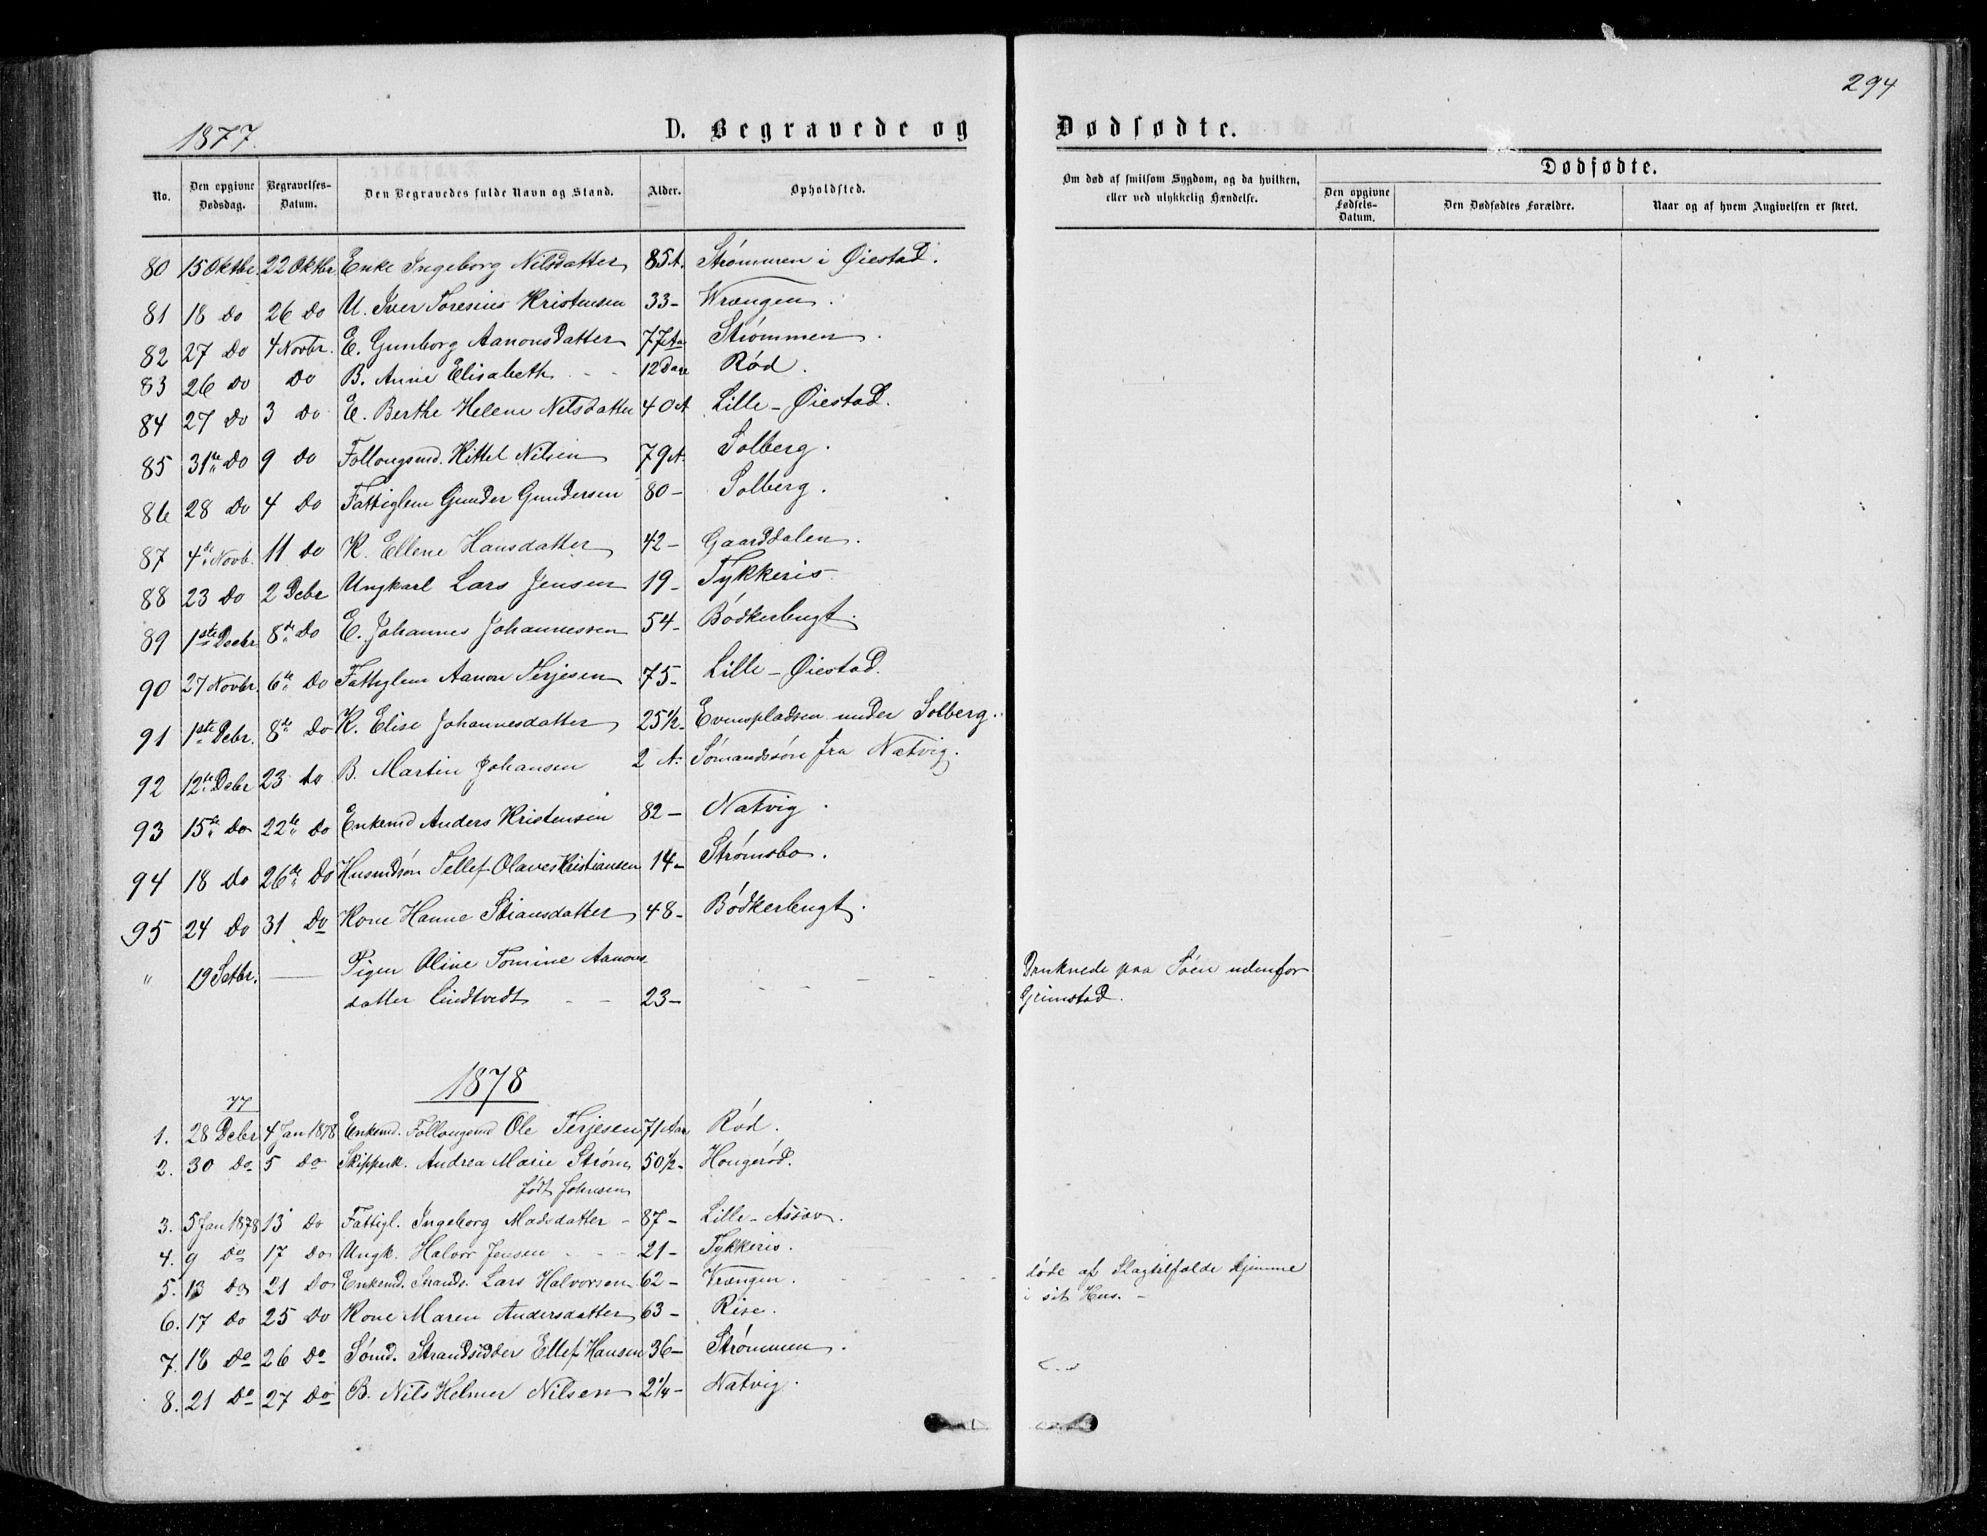 294
1877.
D. Begravede og Dødfødte.
No. Den opgivne Dødsdag. Begravelses-Datum. Den Begravedes fulde Navn og Stand. Alder. Opholdsted. Om død af smitsom Sygdom, og da hvilken, eller ved ulykkelig Hændelse. Dødfødte. Den opgivne Fødsels-Datum. Den Dødfødtes Forældre. Naar og af hvem Angivelsen er skeet.
80 15 Oktbr. 22 Oktbr Enke Ingeborg Nilsdatter 85 A. Strømmen i Øiestad.
81 18 Do 26 Do U. Iver Toresius Kristensen 33 - Vrængen.
82 27 Do 4 Novbr. E. Gunborg Aanonsdatter 77 Aar Strømmen.
83 26 Do Do B. Anne Elisabeth - - 12 Dage Rød.
84 27 Do 3 Do E. Berthe Helene Nilsdatter 40 A Lille-Øiestad.
85 31te Do 9 Do Follougsmd. Kittel Nilsen 79 A. Solberg.
86 28 Do 4 Do Fattiglem Gunder Gundersen 80 - Solberg.
87 4de Novb. 11 Do K. Ellene Hansdatter 42 - Gaarddalen.
88 23 Do 2 Debr Ungkarl Lars Jensen 19 - Tykkeris.
89 1ste Decbr 8de Do E. Johannes Johannessen 54 - Bødkerbugt.
90 27 Novbr. 6te Do Fattiglem Aanon Terjesen 75 - Lille-Øiestad.
91 1ste Debr. 8de Do K. Elise Johannesdatter 25 1/2 Evenspladsen under Solberg.
92 12te Debr 23 do B. Martin Johansen 2 A. Sømandssøn fra Natvig.
93 15de Do 22de Do Enkemd Anders Kristensen 82 - Natvig.
94 18 Do 26de Do Husmdsøn Tellef Olaves Kristiansen 14 - Strømsbo.
95 24 Do 31 Do Kone Hanne Stiansdatter 48 - Bødkerbugt.
" 19 Setbr. — Pigen Oline Tomine Aanons- Druknede paa Søen udenfor
datter Lindtvedt - - 23 - Grimstad.
1878
77
1. 28 Debr 4 Jan 1878 Enkemd. Follougsmd Ole Terjesen 71 Aar Rød.
2. 30 Do 5 Do Skipperk. Andrea Marie Strøm 50 1/2 - Hougerød.
født Johnsen
3. 5 Jan 1878 13 Do Fattigl. Ingeborg Madsdatter - 87 - Lille-Assav.
4. 9 Do 17 Do Ungk. Halvor Jensen - - 21 - Tykkeris.
5. 13 Do 21 Do Enkemd. Strands. Lars Halvorsen 62 - Vrængen. døde af Slagtilfælde hjemme
i sit Hus. -
6. 17 Do 25 Do Kone Maren Andersdatter 63 - Rise.
7. 18 Do 26 Do Sømd. Strandsidder Ellef Hansen 36 - Strømmen.
8. 21 Do 27 Do B. Nils Helmer Nilsen 2 1/4 - Natvig.